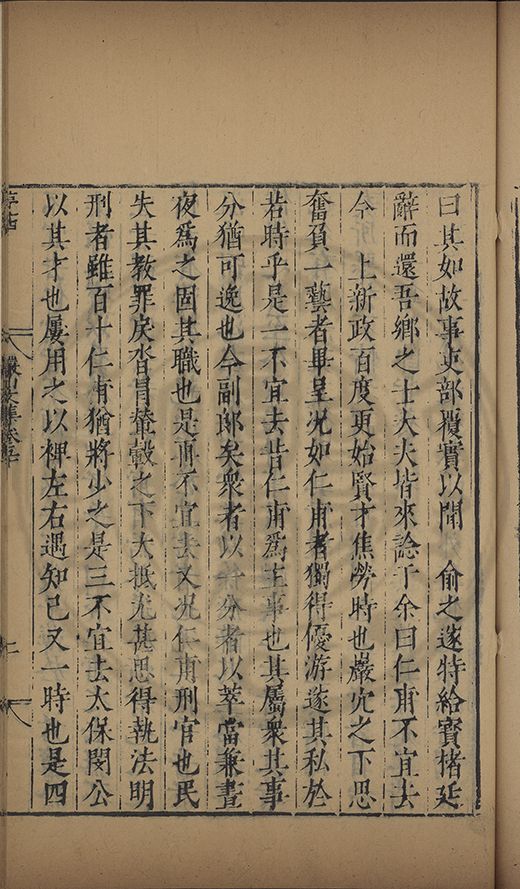 曰其如故事吏部覆實以聞　俞之遂特給寶楮廷
辭而還吾鄉之士大夫皆來諗于余曰仁甫不宜去
今　上新政百度更始賢才焦勞時也巖穴之下思
奮負一藝者畢呈況如仁甫者獨得優游遂其私於
若時乎是一不宜去昔仁甫為主事也其屬衆其事
分猶可逸也今副郎矣衆者以分者以萃當兼晝
夜為之固其職也是再不宜去又況仁甫刑官也民
失其教罪戾沓冐輦轂之下大抵尤甚思得執法明
刑者雖百十仁甫猶將少之是三不宜去太保閔公
以其才也屢用之以裨左右遇知己又一時也是四